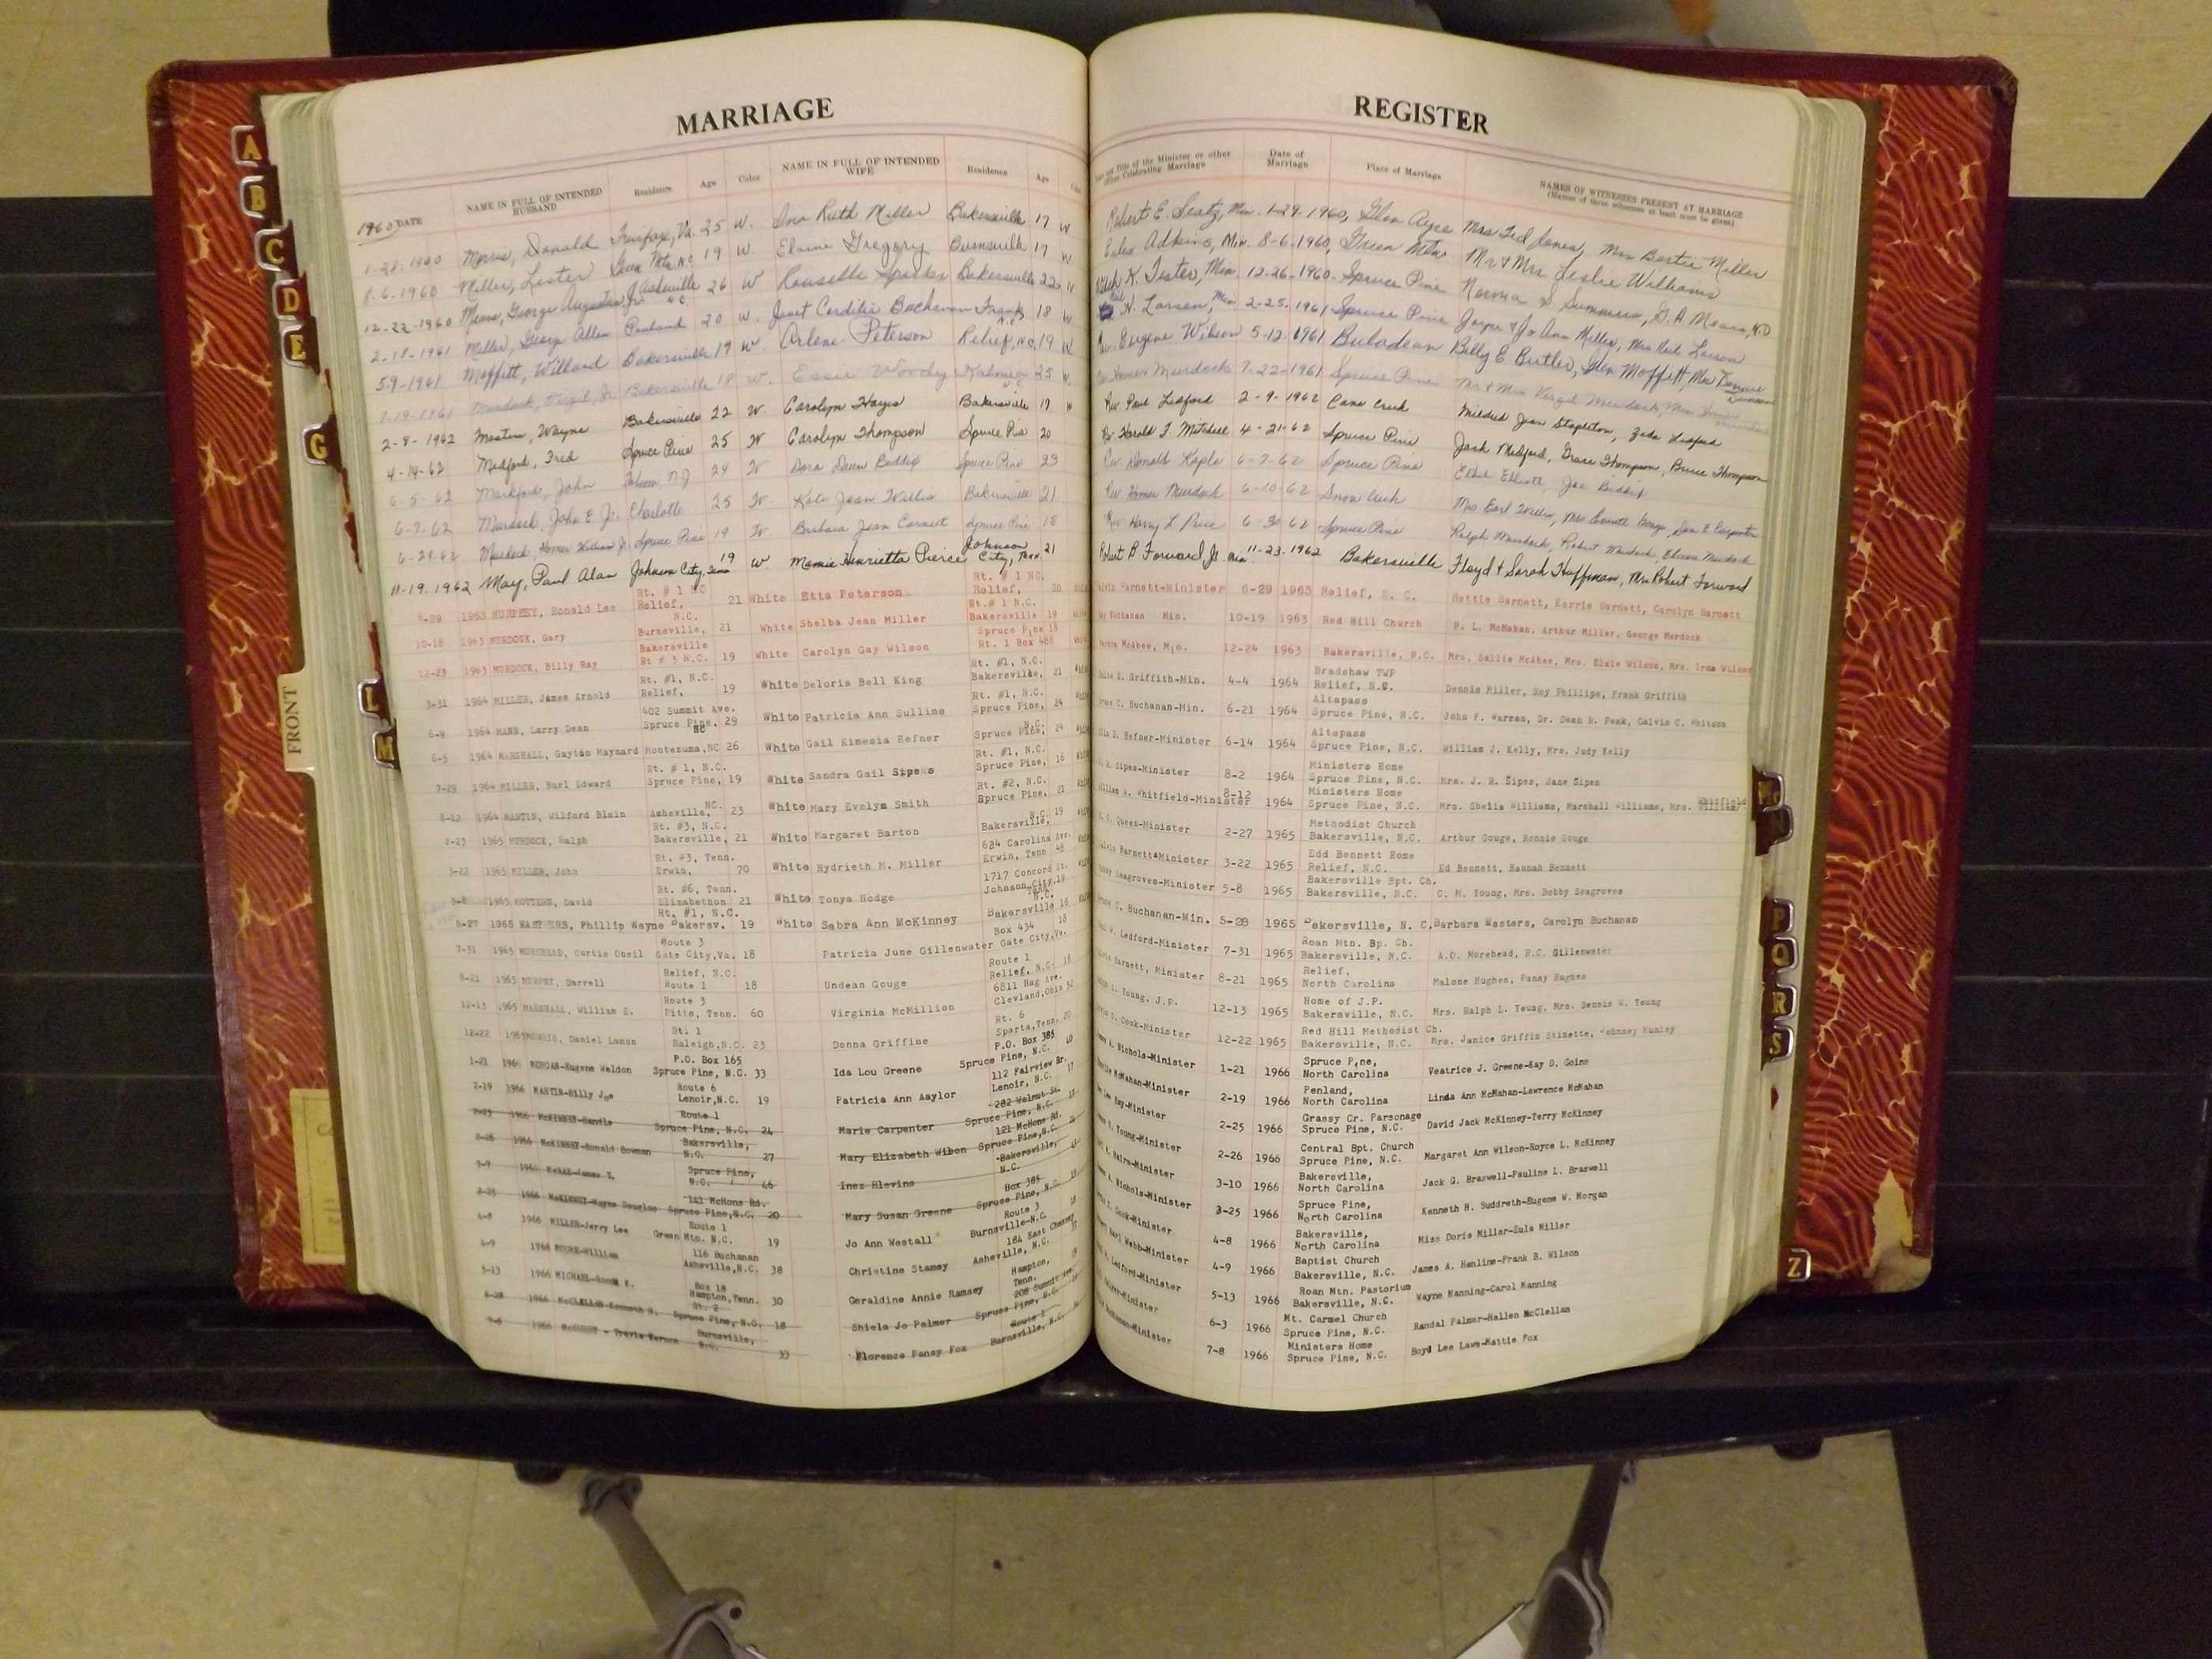 MARRIAGE REGISTER
DATE NAME IN FULL OF INTENDED HUSBAND Residence Age Color NAME IN FULL OF INTENDED WIFE Residence Age Title of the Minister or other Officer Celebrating Marriage Date of Marriage Place of Marriage NAMES OF WITNESSES PRESENT AT MARRIAGE (Names of three witnesses at least must be given)
1960
1-28-1960 Morris, Donald Fairfax, Va. 25 W. Ina Ruth Miller Bakersville 17 W Robert E. Seatz, Min. 1-29-1960, Glen Ayre Mrs Ted Jones, Mrs Bertie Miller
8-6-1960 Miller, Lester Green Mtn. N.C. 19 W. Elaine Gregory Burnsville 17 W Adkins, Min. 8-6-1960, Green Mtn Mr & Mrs Leslie Williams
12-22-1960 Mears, George Augustus Jr Asheville N.C. 26 W Sparks Bakersville 22 K. Tester, Min 12-26-1960 Spruce Pine Norma S Summers, G. A Mears, MD
2-18-1961 Miller, George Allen Penland 20 W. Janet Buchanan Frank N.C. 18 W H. Larsen, Min 2-25-1961 Spruce Pine Joyce & Jo Ann Miller, Mrs Larson
5-9-1961 Moffitt, Willard Bakersville 19 W. Arlene Peterson Relief, N.C. 19 W Eugene Wilson 5-12-1961 Buladean Billy E Butler, Glen Moffitt, Mrs Bennie Duncan
7-19-1961 Murdock, Virgil, Jr. Bakersville 18 W. Essie Woody Kalmia N.C. 25 W. Homer Murdock 7-22-1961 Spruce Pine Mr & Mrs Virgil Murdock, Mrs Homer Murdock
2-8-1962 Masters, Wayne Bakersville 22 W. Carolyn Hayes Bakersville 19 W Rev. Paul Ledford 2-9-1962 Cane Creek Mildred Jean Stapleton, Zada Ledford
4-14-62 Medford, Fred Spruce Pine 25 W Carolyn Thompson Spruce Pine 20 Rev Harold F. Mitchell 4-21-62 Spruce Pine Jack Medford, Grace Thompson, Bruce Thompson
6-5-62 Markford, John N.J. 24 W Dora Dawn Spruce Pine 23 Rev Donald Kaple 6-7-62 Spruce Pine Ethel Elliott, Joe
6-7-62 Murdock, John E Jr. Charlotte 25 W. Kate Jean Willis Bakersville 21 Rev Homer Murdock 6-10-62 Snow Creek Mrs Earl Willis, Mrs Emmett Carpenter
6-29-62 Murdock, Homer William Jr. Spruce Pine 19 W Barbara Jean Spruce Pine 18 Rev Harry L Price 6-30-62 Spruce Pine Ralph Murdock, Robert Murdock, Murdock
11-19-1962 May, Paul Alan Johnson City, Tenn 19 W Mamie Henrietta Pierce Johnson City, Tenn. 21 Robert B Forward Jr. Min 11-23-1962 Bakersville Floyd & Sarah Huffman, Mrs Robert Forward
6-29 1963 MURPHEY, Ronald Lee Rt. # 1 NC Relief, 21 White Etta Peterson Rt. # 1 NC. Relief, 20 Barnett-Minister 6-29 1963 Relief, N. C. Hattie Barnett, Karrie Barnett, Carolyn Barnett
10-18 1963 MURDOCK, Gary N.C. Burnsville, 21 White Shelba Jean Miller Rt.# 1 N.C. Bakersville 19 Buchanan Min. 10-19 1963 Red Hill Church R. L. McMahan, Arthur Miller, George Murdock
12-23 1963 MURDOCK, Billy Ray Bakersville Rt # 3 N.C. 19 White Carolyn Gay Wilson Spruce Pine 18 Rt. 1 Box 468 McAbee, Min. 12-24 1963 Bakersville, N.C. Mrs, Sallie McAbee, Mrs. Elzie Wilson, Mrs. Irma Wilson
3-31 1964 MILLER, James Arnold Rt. #1, N.C. Relief, 19 White Deloris Bell King Rt. #1, N.C. Bakersville, 21 E. Griffith-Min. 4-4 1964 Bradshaw TWP Relief, N.C. Dennis Miller, Roy Phillips, Frank Griffith
6-9 1964 MANN, Larry Dean 402 Summit Ave. Spruce Pine, NC 29 White Patricia Ann Sullins Rt. #1, N.C. Spruce Pine, 24 C. Buchanan-Min. 6-21 1964 Altapass Spruce Pine, N.C. John F. Warren, Dr. Dean R. Peak, Calvin C. Whitson
6-5 1964 MARSHALL, Gaytan Maynard Montezuma,NC 26 White Gail Kimesia Hefner N.C. Spruce Pine, 24 D. Hefner-Minister 6-14 1964 Altapass Spruce Pine, N.C. William J. Kelly, Mrs. Judy Kelly
7-29 1964 MILLER, Burl Edward Rt. # 1, N.C. Spruce Pine, 19 White Sandra Gail Sipeks Rt. #1, N.C. Spruce Pine, 16 Sipes-Minister 8-2 1964 Ministers Home Spruce Pine, N.C. Mrs. J. R. Sipes, Jane Sipes
8-12 1964 MARTIN, Wilford Blain NC. Asheville, 23 White Mary Evelyn Smith Rt. #2, N.C. Spruce Pine, 21 William A. Whitfield-Minister 8-12 1964 Ministers Home Spruce Pine, N.C. Mrs. Shelia Williams, Marshall Williams, Mrs. William Whitfield
2-23 1965 MURDOCK, Ralph Rt. #3, N.C. Bakersville, 21 White Margaret Barton N.C. Bakersville, 19 Queen-Minister 2-27 1965 Methodist Church Bakersville, N.C. Arthur Gouge, Ronnie Gouge
3-22 1965 MILLER, John Rt. #3, Tenn. Erwin, 70 White Hydrieth M. Miller 624 Carolina Ave. Erwin, Tenn 48 Barnett&Minister 3-22 1965 Edd Bennett Home Relief, N.C. Ed Bennett, Hannah Bennett
5-8 1965 MOTTERN, David Rt. #6, Tenn. Elizabethon 21 White Tonya Hodge 1717 Concord St. Johnson City, Tenn. 19 Seagroves-Minister 5-8 1965 Bakersville Bpt. Ch. Bakersville, N.C. C. M. Young, Mrs. Bobby Seagroves
5-27 1965 MASTHERS, Phillip Wayne Rt. #1, N.C. Bakersv. 19 White Sabra Ann McKinney N.C. Bakersville 16 C. Buchanan-Min. 5-28 1965 Bakersville, N. C. Barbara Masters, Carolyn Buchanan
7-31 1965 MOREHEAD, Curtis Oneil Route 3 Gate City,Va. 18 Patricia June Gillenwater Box 434 Gate City,Va. 18 W. Ledford-Minister 7-31 1965 Roan Mtn. Bp. Ch. Bakersville, N.C. A.O. Morehead, R.C. Gillenwater
8-21 1965 MURPHY, Darrell Relief, N.C. Route 1 18 Undean Gouge Route 1 Relief, N.C. 18 Barnett, Minister 8-21 1965 Relief, North Carolina Malone Hughes, Pansy Hughes
12-13 1965 MARSHALL, William E. Route 3 Pitts, Tenn. 60 Virginia McMillion 6811 Hag Ave. Clevland,Ohio 52 Ralph L. Young, J.P. 12-13 1965 Home of J.P. Bakersville, N.C. Mrs. Ralph L. Young, Mrs. Dennis W. Young
12-22 1965 Daniel Lamon Rt. 1 Raleigh,N.C. 23 Donna Griffine Rt. 6 Sparta,Tenn. 20 Cook-Minister 12-22 1965 Red Hill Methodist Ch. Bakersville, N.C. Mrs. Janice Griffin Stinette, Johnney Hunley
1-21 1966 MORGAN-Eugene Weldon P.O. Box 165 Spruce Pine, N.C. 33 Ida Lou Greene P.O. Box 385 Spruce Pine, N.C. 40 A. Nichols-Minister 1-21 1966 Spruce Pine, North Carolina Veatrice J. Greene-Kay D. Goins
2-19 1966 MARTIN-Billy Joe Route 6 Lenoir,N.C. 19 Patricia Ann Aaylor 112 Fairview Dr. Lenoir, N.C. 17 McMahan-Minister 2-19 1966 Penland, North Carolina Linda Ann McMahan-Lawrence McMahan
2-23 1966 McKINNEY-Sandis Route 1 Spruce Pine, N.C. 24 Marie Carpenter 282 Walnut St. Spruce Pine, N.C. 17 Lee Ray-Minister 2-25 1966 Grassy Cr. Parsonage Spruce Pine, N.C. David Jack McKinney-Terry McKinney
2-26 1966 McKINNEY-Ronald Bowman Bakersville, N.C. 27 Mary Elizabeth Wilson 121 McHone Rd. Spruce Pine,N.C. Young-Minister 2-26 1966 Central Bpt. Church Spruce Pine, N.C. Margaret Ann Wilson-Royce L. McKinney
3-7 1966 McRAE-James T. Spruce Pine, N.C. 46 Inez Blevins Bakersville, N.C. Haire-Minister 3-10 1966 Bakersville, North Carolina Jack G. Braswell-Pauline L. Braswell
3-25 1966 McKINNEY-Wayne Douglas 141 McHone Rd. Spruce Pine,N.C. 20 Mary Susan Greene Box 385 Spruce Pine, N.C. A. Nichols-Minister 3-25 1966 Spruce Pine, North Carolina Kenneth H. Suddreth-Eugene W. Morgan
4-8 1966 MILLER-Jerry Lee Route 1 Green Mtn. N.C. 19 Jo Ann Westall Route 3 Burnsville-N.C. 18 Cook-Minister 4-8 1966 Bakersville, North Carolina Miss Doris Miller-Eula Miller
4-9 1966 MOORE-William 116 Buchanan Asheville,N.C. 38 Christine Stamey 184 East Chesney Asheville, N.C. Karl Webb-Minister 4-9 1966 Baptist Church Bakersville, N.C. James A. Henline-Frank B. Wilson
5-13 1966 MICHAEL- Box 18 Hampton,Tenn. 30 Geraldine Annie Ramsey Hampton, Tenn. Ledford-Minister 5-13 1966 Roan Mtn. Pastorium Bakersville, N.C. Wayne Manning-Carol Manning
1966 McCLELLAN-Kenneth R. Rt. 2 Spruce Pine, N.C. 18 Shiela Jo Palmer 208 Summit Ave. Spruce Pine, N.C. Minister 6-3 1966 Mt. Carmel Church Spruce Pine, N.C. Randal Palmer-Hellen McClellan
7-8 1966 McCURRY - Travis Vernon Burnsville, N.C. 33 Florence Pansy Fox Route 1 Burnsville, N.C. Buchanan-Minister 7-8 1966 Ministers Home Spruce Pine, N.C. Boyd Lee Laws-Mattie Fox
A
B
C
D
E
G
FRONT
L
M
P
Q
R
S
Z